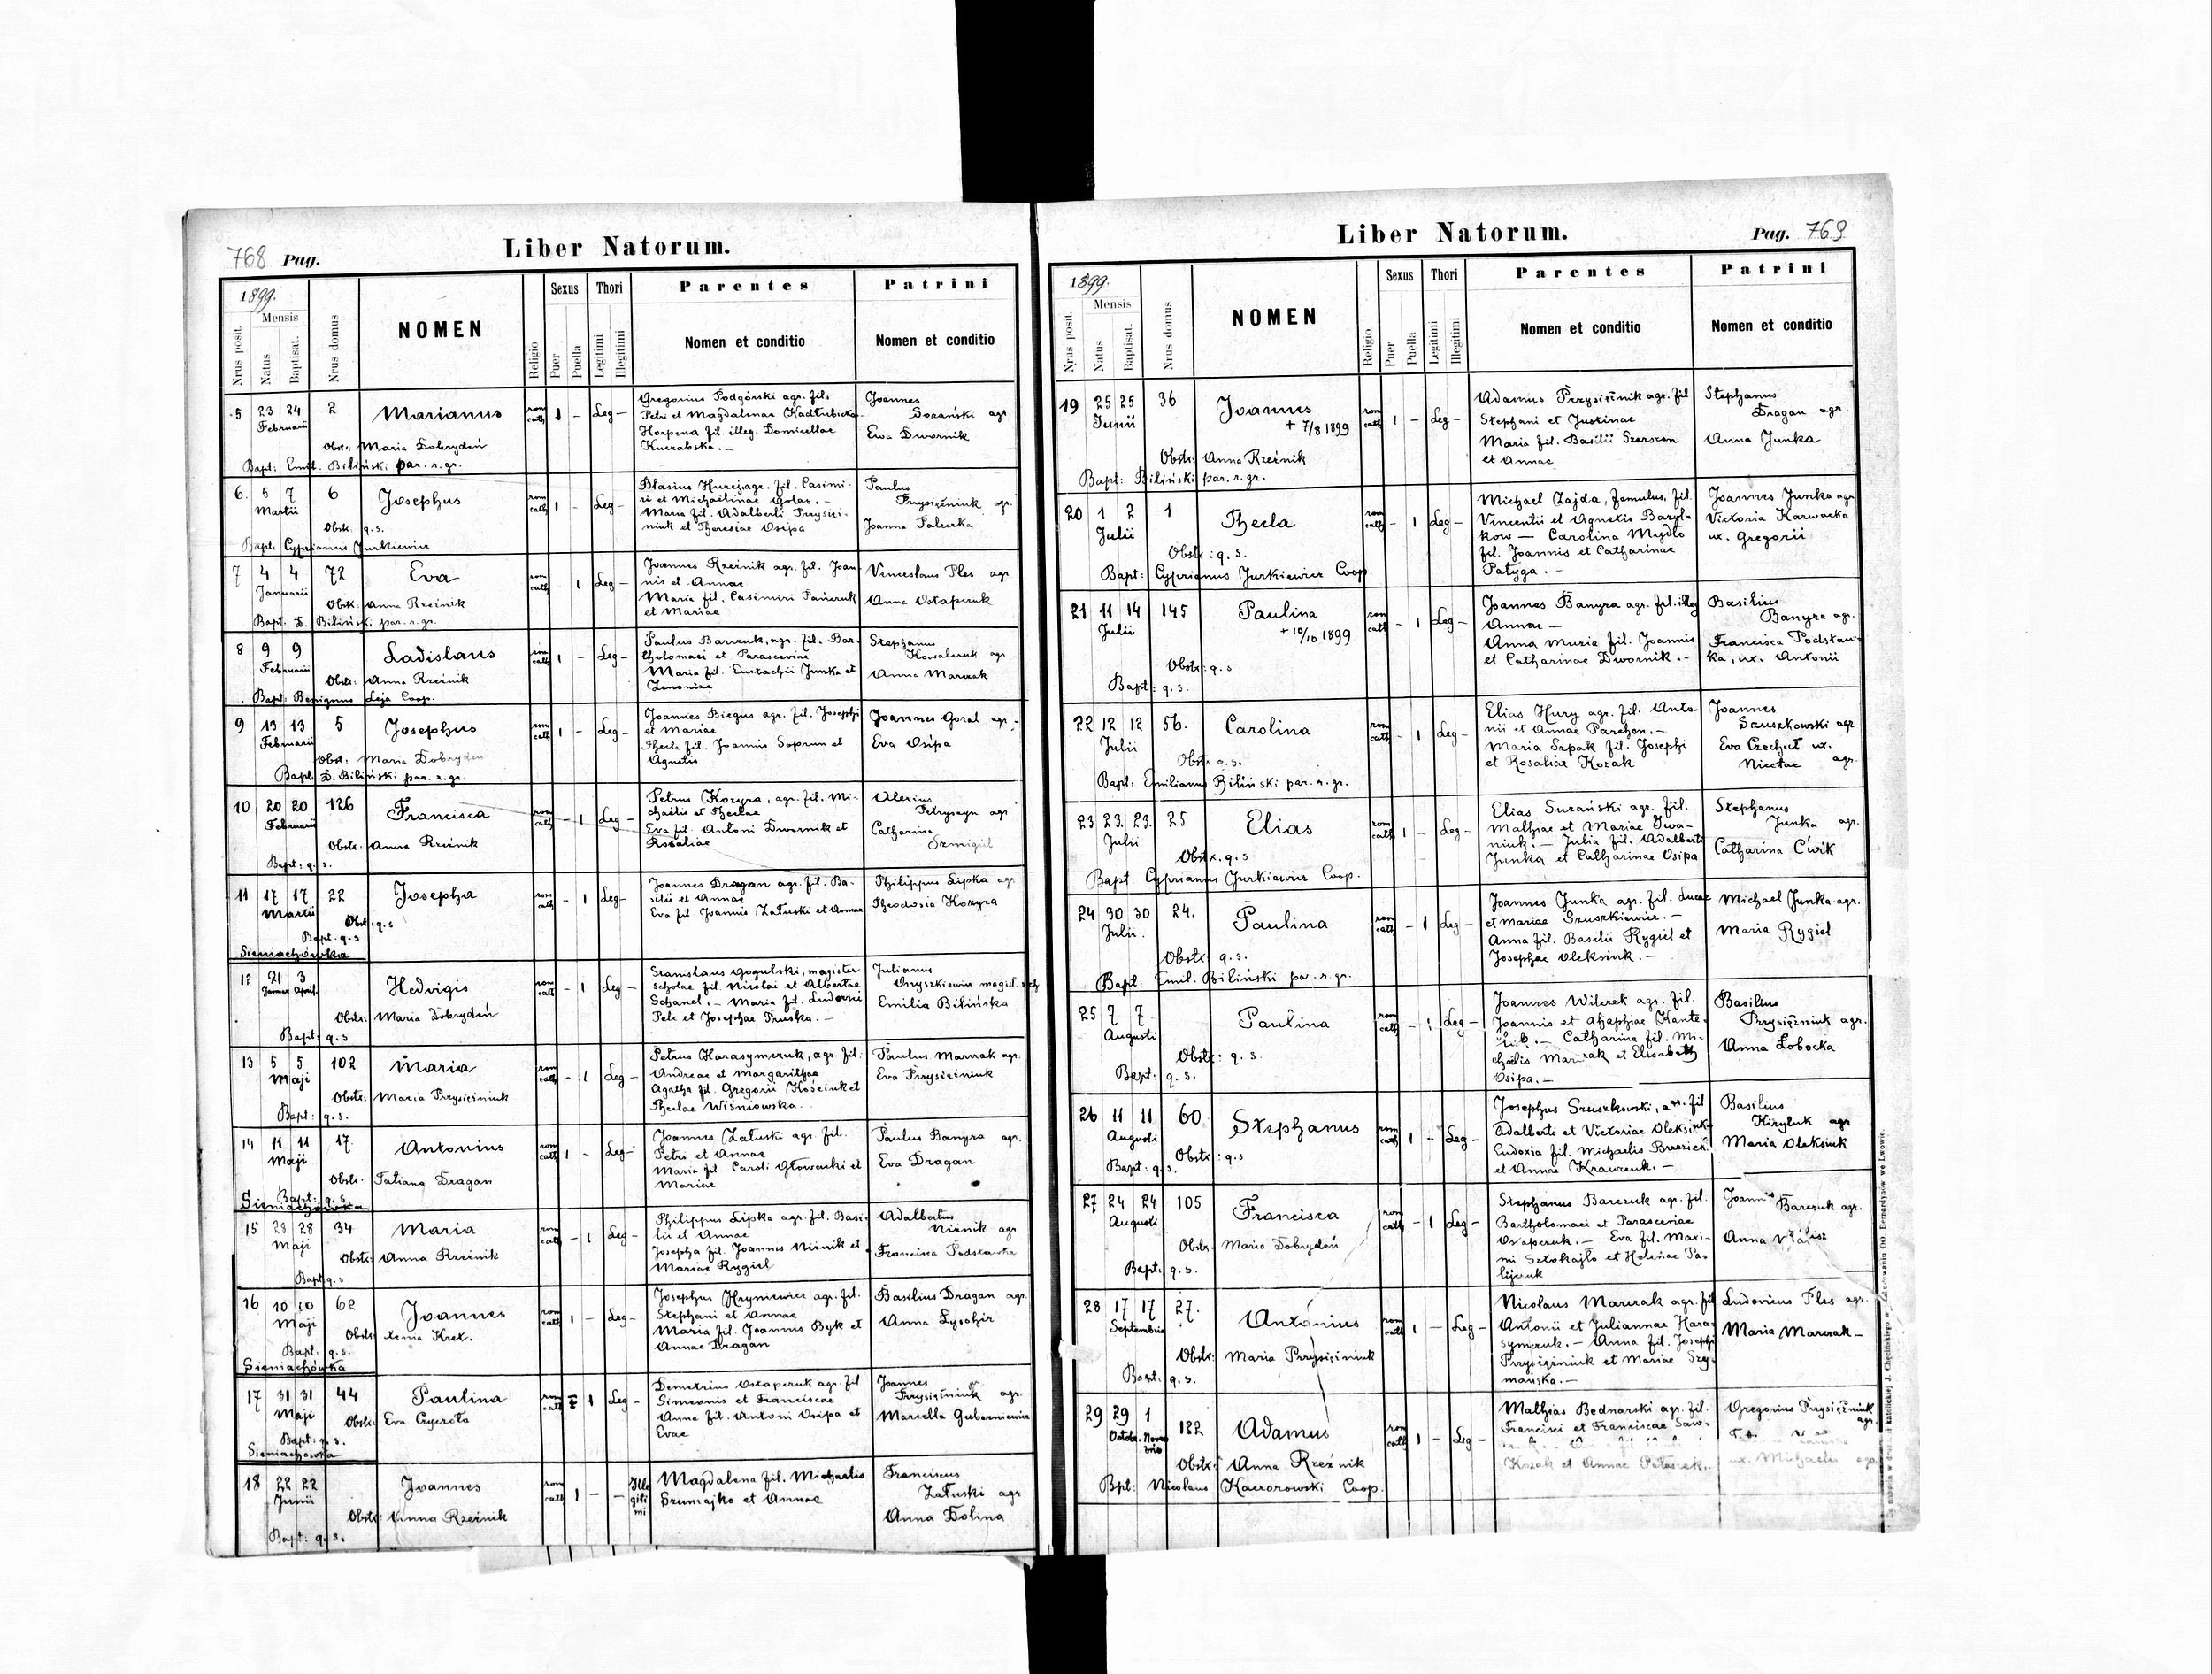 768 Pag.
Liber Natorum.
1899.
Mensis
Nrus posit.
Natus
Baptisat.
Nrus domus
NOMEN
Religio
Sexus
Puer
Puella
Thori
Legitimi
Illegitimi
Parentes
Nomen et conditio
Patrini
Nomen et conditio
5 23 24 2 Marianus rom cath 1 – Leg –
Februarii
Gregorius Podgórski agr. fil.
Petri et Magdalenae Kadłubicka
Horpena fil. illeg. Domicellae
Kuzabska. –
Joannes
Sozański agr
Ewa Dwornik
Obstr. Maria Dobrydeń
Bapt: Emil. Biliński par. r. gr.
6. 5 7 6 Josephus rom cath 1 – Leg –
Martii
Blasius Hurej agr. fil. Casimi-
ri et Michailinae Golas. –
Maria fil. Adalberti Przysięż-
niuk et Theresiae Osipa
Paulus
Przysiężniuk agr.
Joanna Palewka
Obstr. q. s.
Bapt. Cyprianus Jurkiewicz
7 4 4 72 Eva rom cath – 1 Leg –
Januarii
Joannes Rzeźnik agr. fil. Joan-
nis et Annae
Maria fil. Casimiri Pańczuk
et Mariae
Venceslaus Ples agr
Anna Ostapczuk
Obstr: Anna Rzeźnik
Bapt. D. Biliński par. r. gr.
8 9 9 Ladislaus rom cath 1 – Leg –
Februarii
Paulus Barczuk, agr. fil. Bar-
tholomaei et Parasceviae
Maria fil. Eustachii Junka et
Zenoniae
Stephanus
Kowalczuk agr
Anna Marczak
Obstr: Anna Rzeźnik
Bapt: Benignus Leja Coop.
9 13 13 5 Josephus rom cath 1 – Leg –
Februarii
Joannes Biegus agr. fil. Josephi
et Mariae
Thecla fil. Joannis Soprun et
Agnetis
Joannes Goral agr. –
Eva Osipa
Obst: Maria Dobrydeń
Bapt D. Biliński par. r. gr.
10 20 20 126 Francisca rom cath – 1 Leg –
Februarii
Petrus Kozyra, agr. fil. Mi-
chaelis et Theclae
Eva fil. Antoni Dwornik et
Rosaliae
Alexius
Petryszyn agr
Catharina
Szmigiel
Obstr: Anna Rzeźnik
Bapt: q. s.
11 17 17 22 Josepha rom cath – 1 Leg –
Martii
Joannes Dragan agr. fil. Ba-
silii et Annae
Eva fil. Joannis Załuski et Annae
Philippus Lipka agr
Theodosia Kozyra
Obst: q. s
Bapt. q. s
Sieniachówka
12 21 3 Hedvigis rom cath – 1 Leg –
April.
Stanislaus Gogulski, magister
scholae fil. Nicolai et Albertae
Schanel. – Maria fil. Ludovici
Pelc et Josephae Pruska. –
Julianus
Onyszkiewicz magist. sch
Emilia Bilińska
Obstr: Maria Dobrydeń
Bapt: q. s
13 5 5 102 Maria rom cath – 1 Leg –
Maji
Petrus Harasymczuk, agr. fil.
Andreae et Margarithae
Agatha fil. Gregorii Kościuk et
Theclae Wiśniowska.
Paulus Marczak agr.
Eva Przysiężniuk
Obstr: Maria Przysiężniuk
Bapt: q. s.
14 11 11 17. Antonius rom cath 1 – Leg –
Maji
Joannes Załuski agr. fil.
Petri et Annae
Maria fil Caroli Głowacki et
Mariae
Paulus Banyra agr.
Eva Dragan
Obstr. Tatiana Dragan
Bapt: q. s
Sieniachówka
15 28 28 34 Maria rom cath – 1 Leg –
Maji
Philippus Lipka agr. fil. Basi-
lii et Annae
Josepha fil. Joannes Niżnik et
Mariae Rygiel
Adalbertus
Niżnik agr
Francisca Podstawka
Obstr: Anna Rzeźnik
Bapt: q. s
16 10 10 62 Joannes rom cath 1 – Leg –
Maji
Josephus Hryniewicz agr. fil.
Stephani et Annae
Maria fil. Joannis Byk et
Annae Dragan
Basilius Dragan agr.
Anna Lysohir
Obstr: Xenia Kret.
Bapt. q. s.
Sieniachówka
17 31 31 44 Paulina rom cath 1 Leg –
Maji
Demetrius Ostapczuk agr. fil
Simeonis et Franciscae
Anna fil. Antoni Osipa et
Evae
Joannes
Przysiężniuk agr.
Marcella Guberniewicz
Obstr: Eva Czyczota
Bapt: q. s.
Sieniachówka
18 22 22 Joannes rom cath 1 – – Ille giti mi
Junii
Magdalena fil. Michaelis
Szumajko et Annae
Franciscus
Załuski agr
Anna Dolina
Obstr: Anna Rzeźnik
Bapt: q. s.
Liber Natorum.
Pag. 769
1899.
Mensis
Nrus posit.
Natus
Baptisat.
Nrus domus
NOMEN
Religio
Sexus
Puer
Puella
Thori
Legitimi
Illegitimi
Parentes
Nomen et conditio
Patrini
Nomen et conditio
19 25 25 36 Joannes rom cath 1 – Leg –
Junii
+ 7/8 1899
Adamus Przysiężnik agr. fil
Stephani et Justinae
Maria fil. Basilii Szerszen
et Annae
Stephanus
Dragan agr.
Anna Junka
Obstr: Anna Rzeźnik
Bapt: Biliński par. r. gr.
20 1 2 1 Thecla rom cath – 1 Leg –
Julii
Michael Zajda, famulus, fil.
Vincentii et Agnetis Baryl-
kow — Carolina Mydło
fil. Joannis et Catharinae
Patyga. –
Joannes Junka agr
Victoria Karwacka
ux. Gregorii
Obstr: q. s.
Bapt: Cyprianus Jurkiewicz Coop
21 11 14 145 Paulina rom cath – 1 Leg –
Julii
+ 10/10 1899
Joannes Banyra agr. fil. illeg
Annae –
Anna Muria fil. Joannis
et Catharinae Dwornik. –
Basilius
Banyra agr.
Francisca Podstaw-
ka, ux. Antonii
Obstr: q. s
Bapt: q. s.
22 12 12 56. Carolina rom cath – 1 Leg –
Julii
Elias Hury agr. fil. Anto-
nii et Annae Parchon. –
Maria Szpak fil. Josephi
et Rosaliae Kozak
Joannes
Szuszkowski agr
Eva Czechut ux.
Nicetae agr.
Obstr q. s.
Bapt: Emilianus Biliński par. r. gr.
23 23. 23. 25 Elias rom cath 1 – Leg –
Julii
Elias Suzański agr. fil.
Mathiae et Mariae Iwa-
niuk. – Julia fil. Adalberti
Junka et Catharinae Osipa
Stephanus
Junka agr.
Catharina Ćwik
Obstr. q. s
Bapt. Cyprianus Jurkiewicz Coop.
24 30 30 24. Paulina rom cath – 1 Leg –
Julii.
Joannes Junka agr. fil. Lucae
et Mariae Szuszkiewicz. –
Anna fil. Basilii Rygiel et
Josephae Oleksiuk. –
Michael Junka agr.
Maria Rygiel
Obstr: q. s.
Bapt: Emil. Biliński par. r. gr.
25 7 7 Paulina rom cath – 1 Leg –
Augusti
Joannes Wilczek agr. fil.
Joannis et Ahaphiae
Catharine fil. Mi-
chaelis Marczak et Elisabeth
Osipa. –
Basilius
Przysiężniuk agr.
Anna Łobocka
Obstr: q. s.
Bapt: q. s.
26 11 11 60 Stephanus rom cath 1 – Leg –
Augusti
Josephus Szuszkowski, agr. fil
Adalberti et Victoriae Oleksiuk
Eudoxia fil. Michaelis
et Annae Krawczuk. –
Basilius
Kiryluk agr
Maria Oleksiuk
Obstr: q. s
Bapt: q. s.
27 24 24 105 Francisca rom cath – 1 Leg –
Augusti
Stephanus Barczuk agr. fil.
Bartholomaei et Parasceviae
Ostapczuk. – Eva fil. Maxi-
mi Sztokajło et Helenae Pa-
lijczuk
Joannes Barczuk agr.
Anna
Obstr. Maria Dobrydeń
Bapt: q. s.
28 17 17 27. Antonius rom cath 1 – Leg –
Septembris
Nicolaus Marczak agr. fil
Antonii et Juliannae Hara-
symczuk. – Anna fil. Josephi
Przysiężniuk et Mariae Szy-
mańska. –
Ludovicus Ples agr.
Maria Marczak –
Obstr: Maria Przysiężniuk
Bapt: q. s.
29 29 1 182 Adamus rom cath 1 – Leg –
Octob. Novembris
Mathias Bednarski agr. fil.
Francisci et Franciscae Saw-
Kozak et Annae
Gregorius Przysiężniuk
agr.
ux. Michaelis agr.
Obstr: Anna Rzeźnik
Bpt: Nicolaus Kaczorowski Coop.